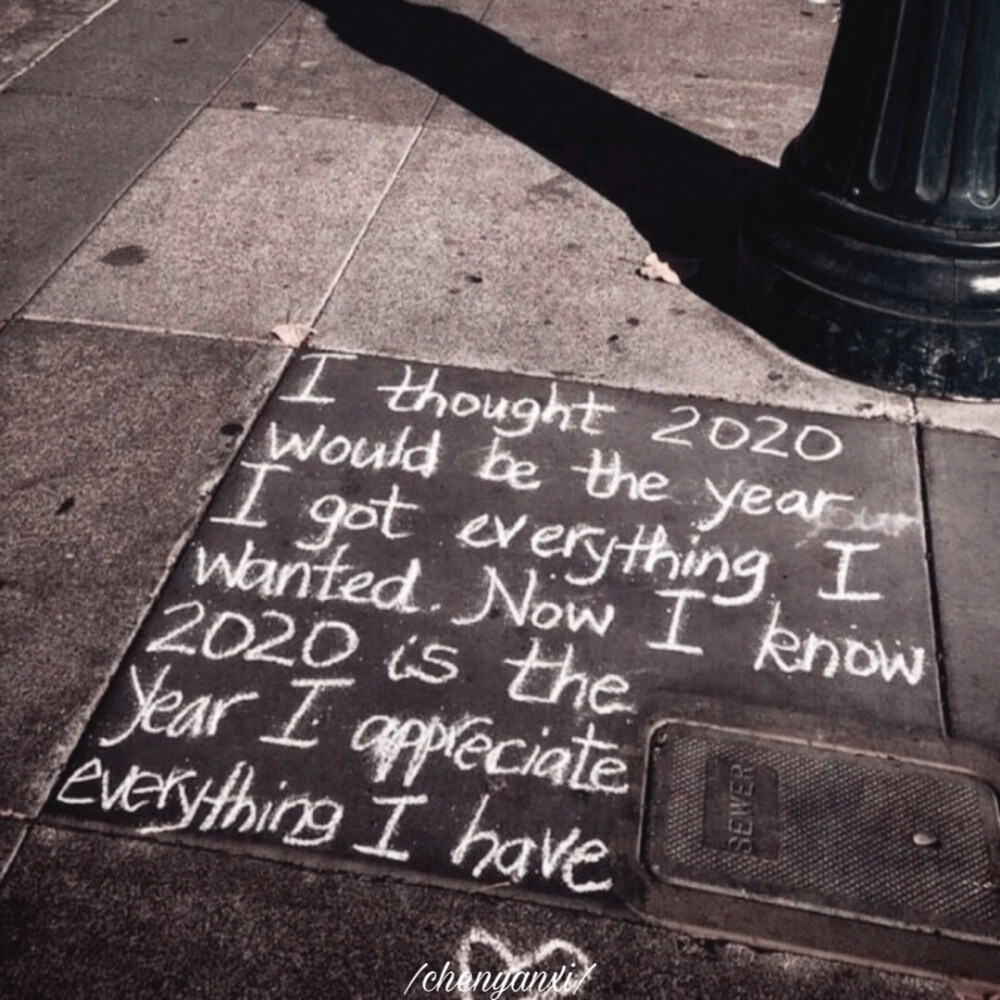 I thought 2020
would be the year
I got everything I
wanted. Now I know
2020 is the
year I appreciate
everything I have
SEWER
/chenyanxi/